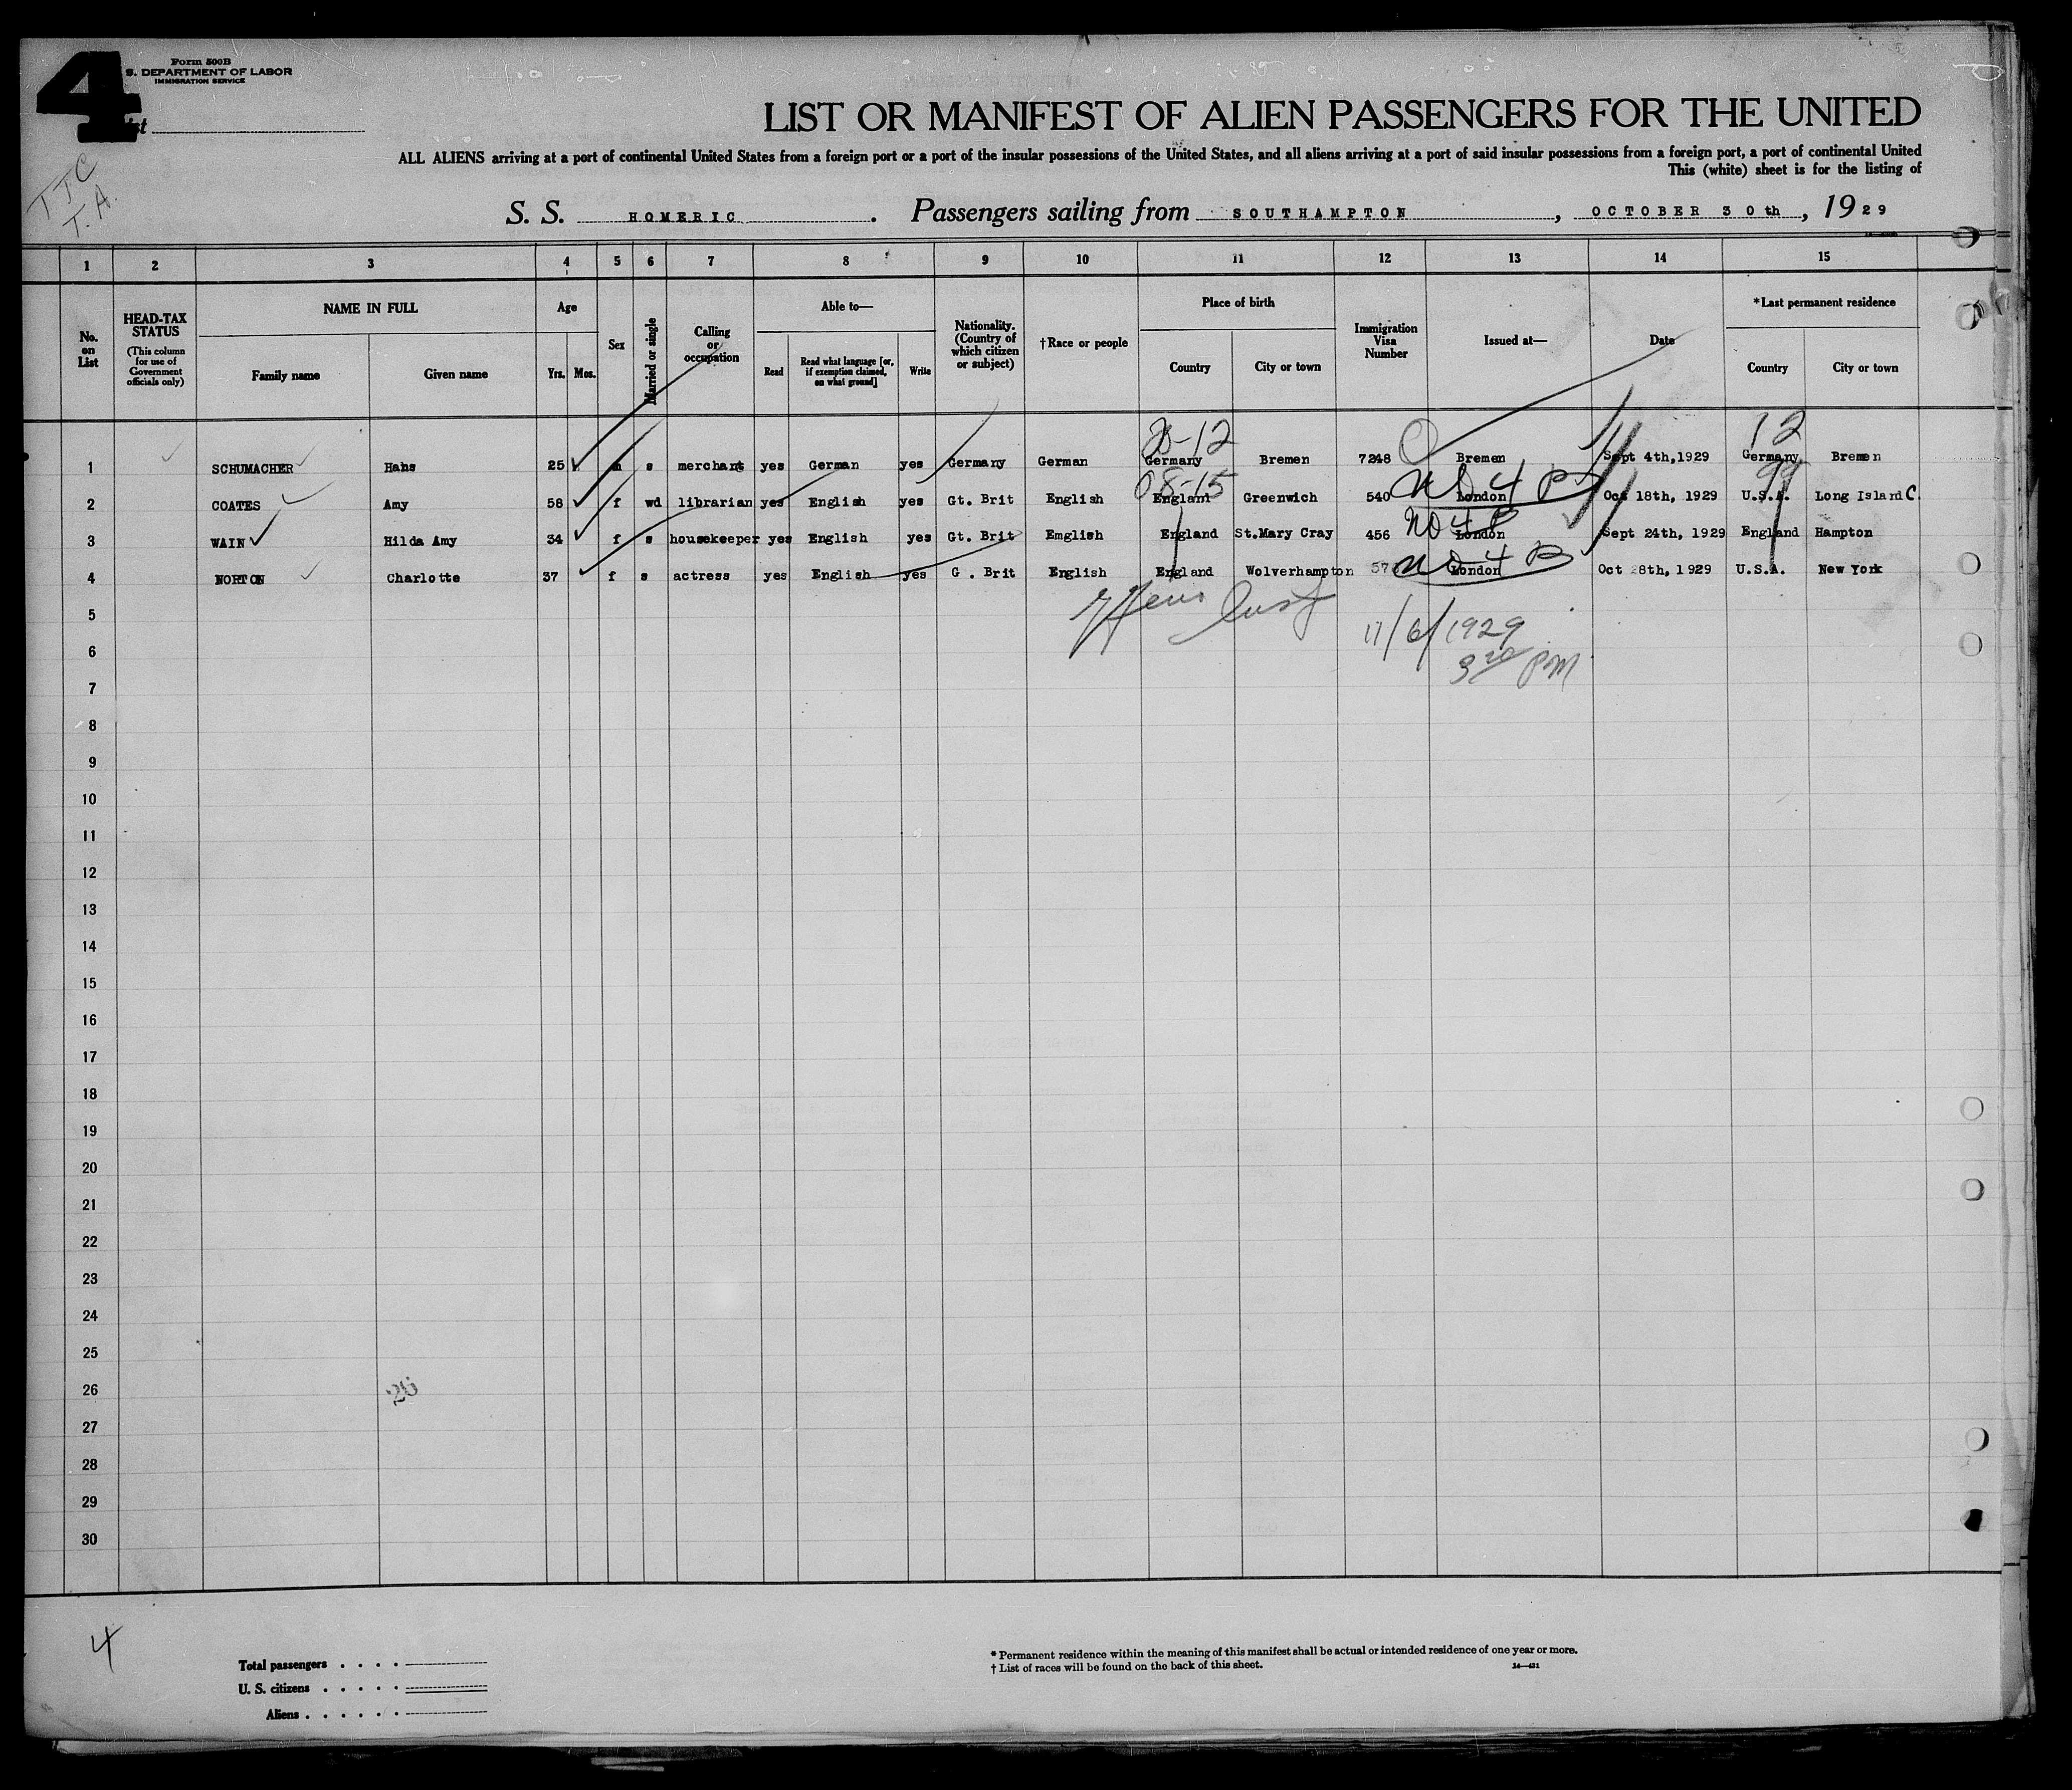 4
Form 500B
S. DEPARTMENT OF LABOR
IMMIGRATION SERVICE
TTC
T.A.
LIST OR MANIFEST OF ALIEN PASSENGERS FOR THE UNITED
ALL ALIENS arriving at a port of continental United States from a foreign port or a port of the insular possessions of the United States, and all aliens arriving at a port of said insular possessions from a foreign port, a port of continental United
This (white) sheet is for the listing of
S. S. HOMERIC. Passengers sailing from SOUTHAMPTON, OCTOBER 30th, 1929
1 2 3 4 5 6 7 8 9 10 11 12 13 14 15
No. on List
HEAD-TAX STATUS (This column for use of Government officials only)
NAME IN FULL
Family name Given name
Age
Yrs. Mos.
Sex
Married or single
Calling or occupation
Able to—
Read Read what language [or, if exemption claimed, on what ground] Write
Nationality. (Country of which citizen or subject)
†Race or people
Place of birth
Country City or town
Immigration Visa Number
Issued at—
Date
*Last permanent residence
Country City or town
12
1 SCHUMACHER Hans 25 m s merchant yes German yes Germany German Germany Bremen 7248 Bremen Sept 4th,1929 Germany Bremen
08-15 99
2 COATES Amy 58 f wd librarian yes English yes Gt. Brit English England Greenwich 540 London Oct 18th, 1929 U.S.A. Long Island C.
3 WAIN Hilda Amy 34 f s housekeeper yes English yes Gt. Brit Emglish England St.Mary Cray 456 London Sept 24th, 1929 England Hampton
4 NORTON Charlotte 37 f s actress yes English yes G . Brit English England Wolverhampton London Oct 28th, 1929 U.S.A. New York
5
11/6/1929
6
3 20 PM
7
8
9
10
11
12
13
14
15
16
17
18
19
20
21
22
23
24
25
26 26
27
28
29
30
4
Total passengers . . . .
U. S. citizens . . . . .
Aliens . . . . . .
* Permanent residence within the meaning of this manifest shall be actual or intended residence of one year or more.
† List of races will be found on the back of this sheet.